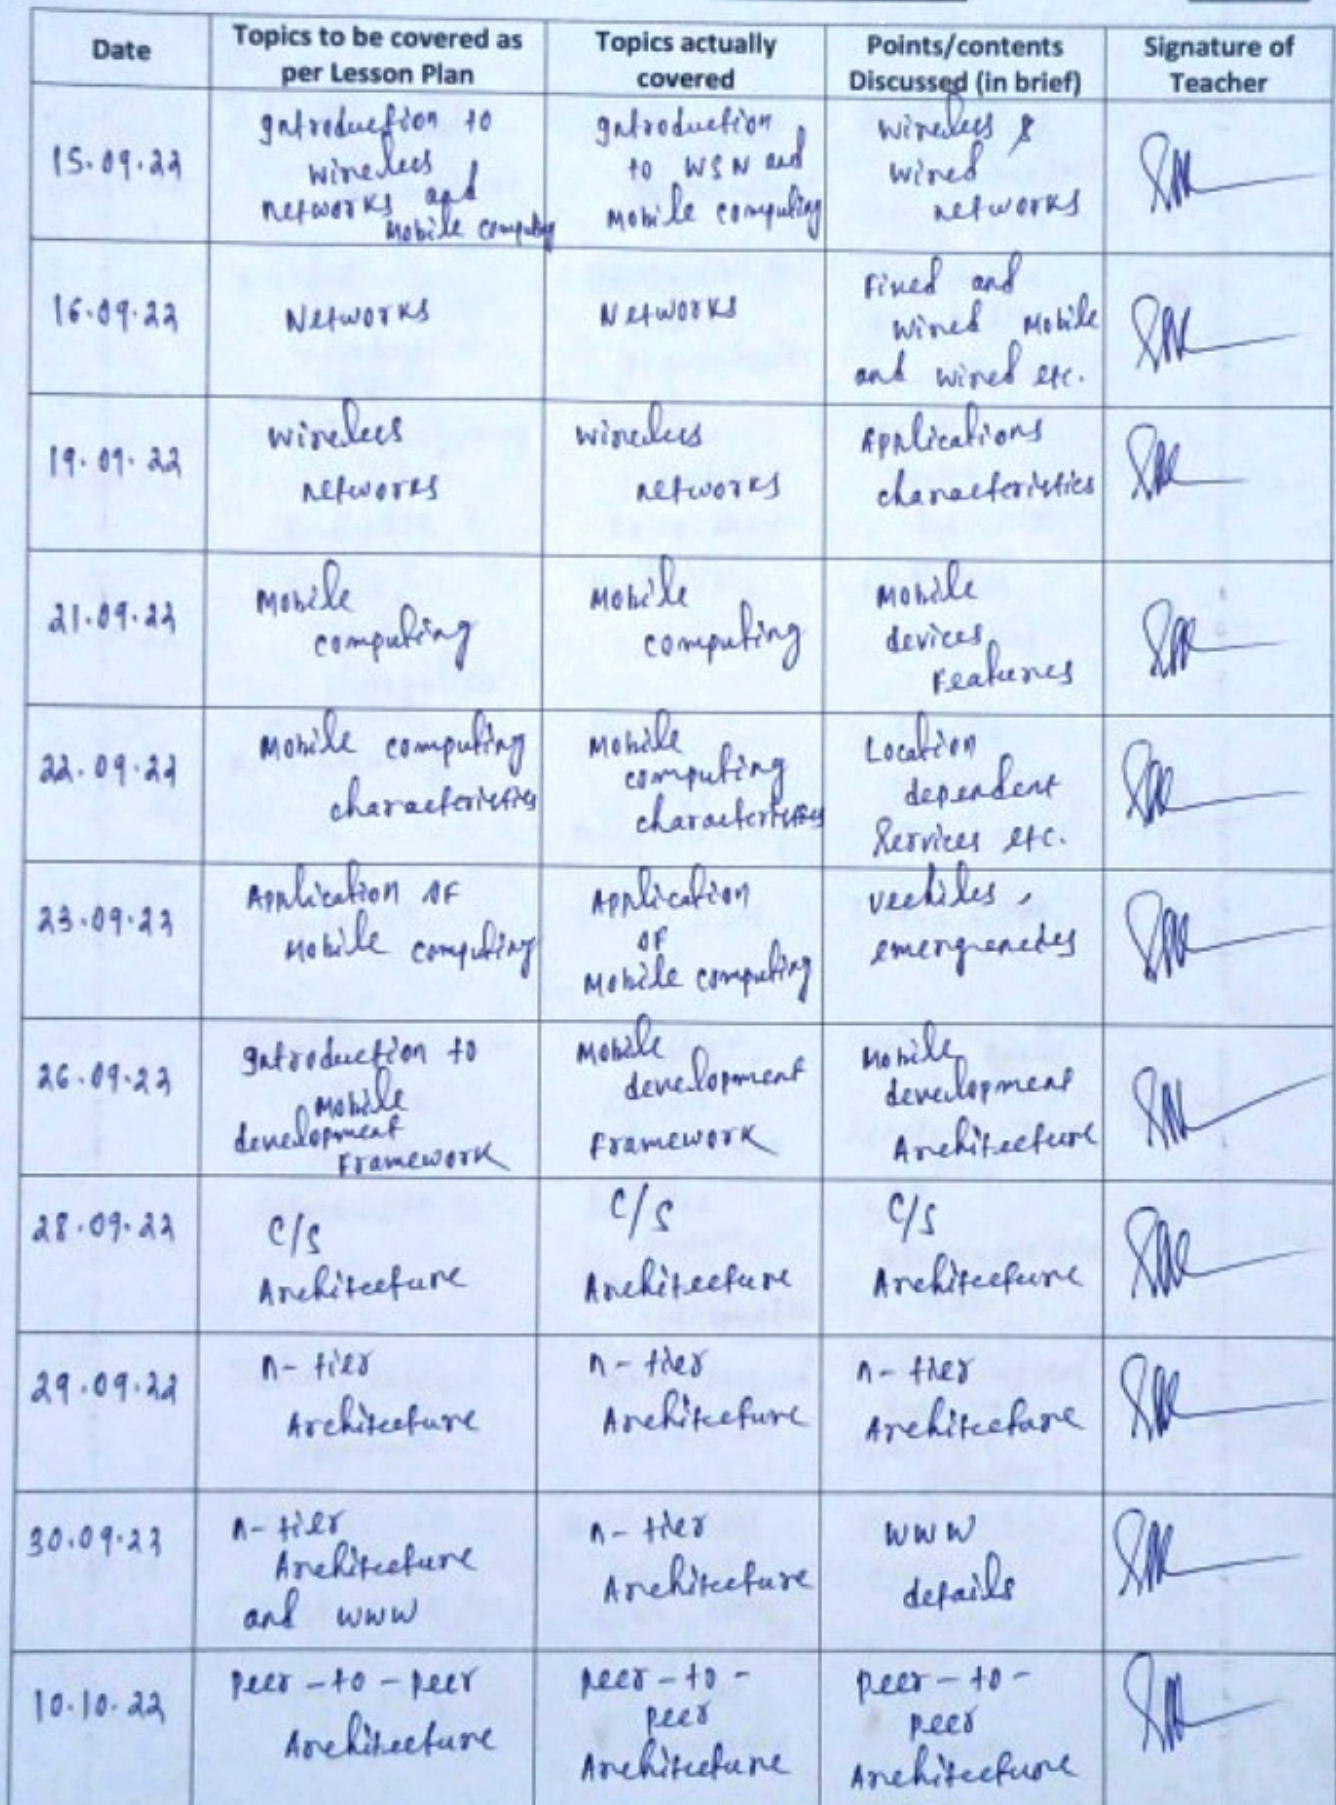 Date
Topics to be covered as
per Lesson Plan
Topics actually
covered
Points/contents
Discussed (in brief)
Signature of
Teacher
15.09.22
Introduction to
wireless
networks and
Mobile computing
Introduction
to WSN and
Mobile computing
wireless &
wired
networks
16.09.22
Networks
Networks
Fixed and
wired Mobile
and wired etc.
19.09.22
wireless
networks
wireless
networks
Applications
characteristics
21.09.22
Mobile
computing
Mobile
computing
Mobile
devices
Features
22.09.22
Mobile computing
characteristics
Mobile
computing
characteristics
Location
dependent
Services etc.
23.09.22
Application OF
Mobile computing
Application
OF
Mobile computing
vechiles,
emergencies
26.09.22
Introduction to
Mobile
development
Framework
Mobile
development
Framework
Mobile
development
Architecture
28.09.22
C/S
Architecture
C/S
Architecture
C/S
Architecture
29.09.22
n-tier
Architecture
n-tier
Architecture
n-tier
Architecture
30.09.22
n-tier
Architecture
and www
n-tier
Architecture
www
details
10.10.22
peer-to-peer
Architecture
peer-to-
peer
Architecture
peer-to-
peer
Architecture